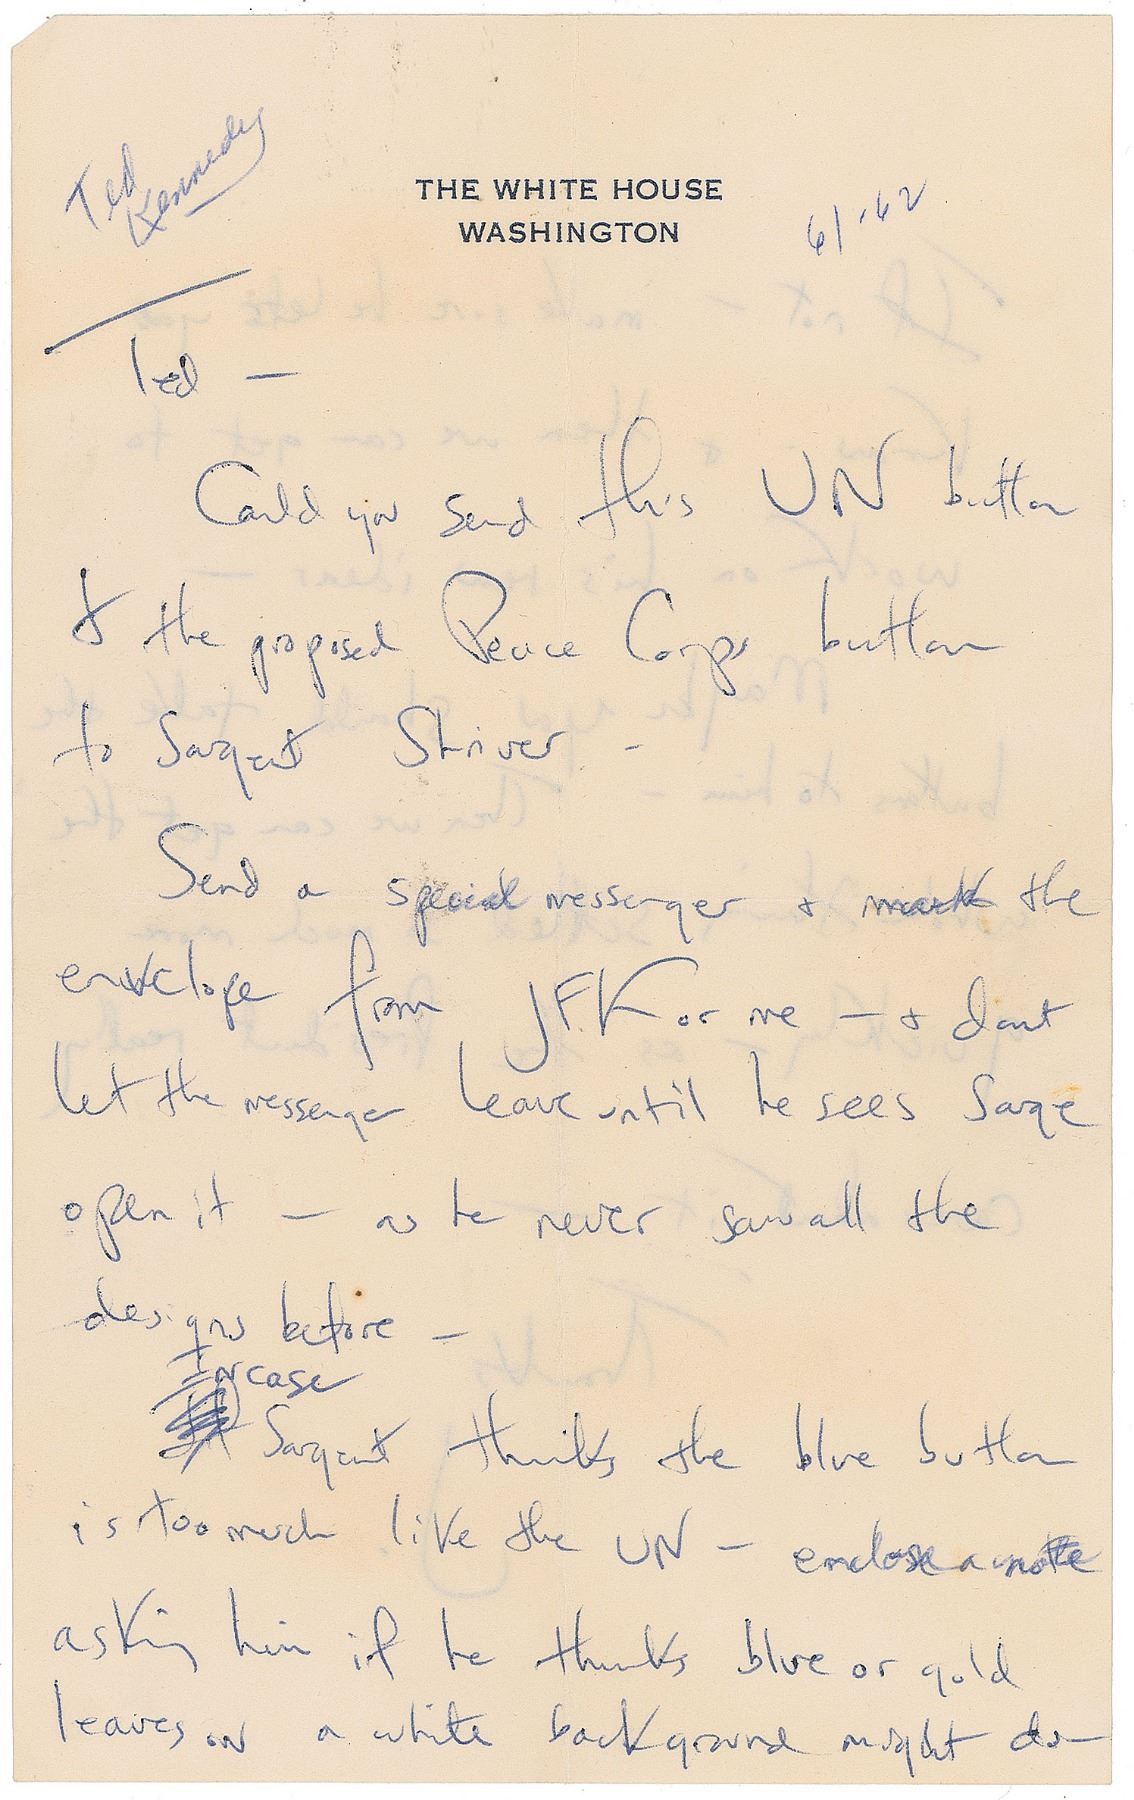 Ted
Kennedy
THE WHITE HOUSE
WASHINGTON
61-62
Ted —
Could you send this UN button
& the proposed Peace Corps button
to Sargent Shriver -
Send a special messenger & mark the
envelope from JFK or me — & dont
let the messenger leave until he sees Sarge
open it — as he never saw all the
designs before —
In case
Sargent thinks the blue button
is too much like the UN — enclose a note
asking him if he thinks blue or gold
leaves on a white background might do —